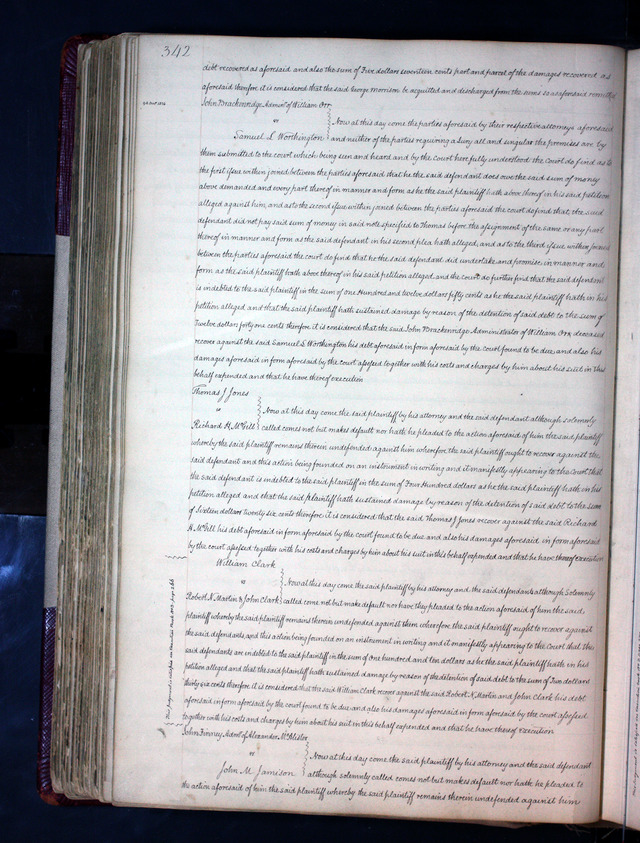 342
debt recovered as aforesaid and also the sum of Five dollars seventeen cents part and parcel of the damages recovered as
aforesaid therefore it is considered that the said George Morrison be acquitted and discharged from the sums so as aforesaid
John Brackenridge Admr of William Orr
vs
Now at this day come the parties aforesaid by their respective attorneys aforesaid
Samuel S Worthington and neither of the parties requiring a Jury all and singular the premises are by
them submitted to the court which being seen and heard and by the Court here fully understood the Court do find as to
the first issue within joined between the parties aforesaid that he the said defendant does owe the said sum of money
above demanded and every part thereof in manner and form as he the said plaintiff hath above thereof in his said petition
alleged against him, and as to the second issue within joined between the parties aforesaid the court do find that, the said
defendant did not pay said sum of money in said note specified to Thomas before the assignment of the same or any part
thereof in manner and form as the said defendant in his second plea hath alleged, and as to the third issue within joined
between the parties aforesaid the court do find that he the said defendant did undertake and promise in manner and
form as the said plaintiff hath above thereof in his said petition alleged, and the court do further find that the said defendant
is indebted to the said plaintiff in the sum of one Hundred and twelve dollars fifty cents as he the said plaintiff hath in his
petition alleged and that the said plaintiff hath sustained damage by reason of the detention of said debt to the sum of
Twelve dollars forty one cents therefore it is considered that the said John Brackenridge Administrator of William Orr deceased
recover against the said Samuel S. Worthington his debt aforesaid in form aforesaid by the court found to be due, and also his
damages aforesaid in form aforesaid by the court assessed together with his costs and charges by him about his suit in this
behalf expended and that he have thereof execution
Thomas J Jones
vs
Now at this day come the said plaintiff by his attorney and the said defendant although solemnly
Richard H McGill called comes not but makes default nor hath he pleaded to the action aforesaid of him the said plaintiff
whereby the said plaintiff remains therein undefended against him wherefore the said plaintiff ought to recover against the
said defendant and this action being founded on an instrument in writing and it manifestly appearing to the Court that
the said defendant is indebted to the said plaintiff in the sum of Four Hundred dollars as he the said plaintiff hath in his
petition alleged and that the said plaintiff hath sustained damage by reason of the detention of said debt to the sum
of Sixteen dollars twenty six cents therefore it is considered that the said Thomas J Jones recover against the said Richard
H McGill his debt aforesaid in form aforesaid by the court found to be due and also his damages aforesaid in form aforesaid
by the court assessed together with his costs and charges by him about his suit in this behalf expended and that he have thereof execution
William Clark
vs
Now at this day come the said plaintiff by his attorney and the said defendants although Solemnly
Robert N. Martin & John Clark called come not but make default nor have they pleaded to the action aforesaid of him the said
plaintiff whereby the said plaintiff remains therein undefended against them wherefore the said plaintiff ought to recover against
the said defendants and this action being founded on an instrument in writing and it manifestly appearing to the Court that the
said defendants are indebted to the said plaintiff in the sum of one hundred and ten dollars as he the said plaintiff hath in his
petition alleged and that the said plaintiff hath sustained damage by reason of the detention of said debt to the sum of Two dollars
thirty six cents therefore it is considered that the said William Clark recover against the said Robert N. Martin and John Clark his debt
aforesaid in form aforesaid by the court found to be due and also his damages aforesaid in form aforesaid by the court assessed
together with his costs and charges by him about his suit in this behalf expended and that he have thereof execution
John Finney Admr of Alexander McAlister
vs
Now at this day come the said plaintiff by his attorney and the said defendant
John M. Jamison although solemnly called comes not but makes default nor hath he pleaded to
the action aforesaid of him the said plaintiff whereby the said plaintiff remains therein undefended against him